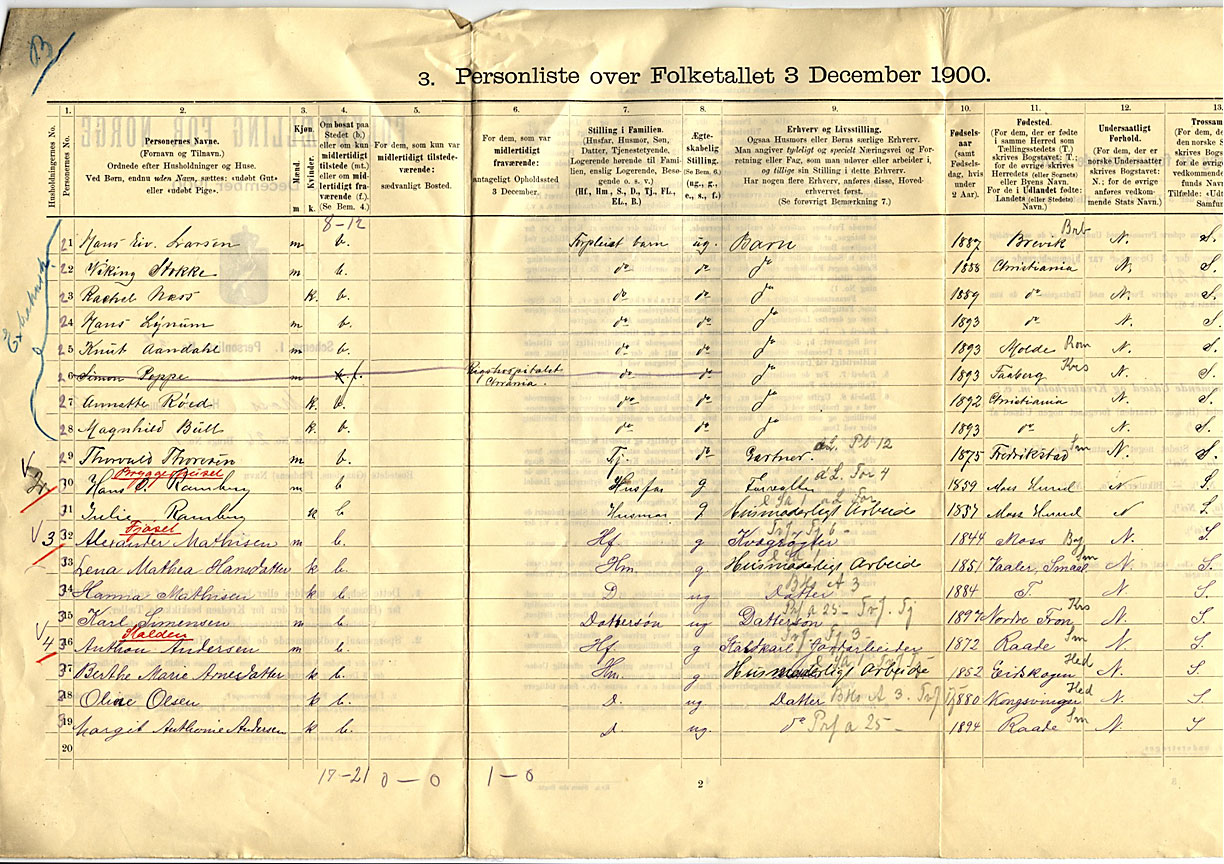 B
3. Personliste over Folketallet 3 December 1900.
1. 2. 3. 4. 5. 6. 7. 8. 9. 10. 11. 12. 13.
Husholdningernes No.
Personernes No.
Personernes Navne.
(Fornavn og Tilnavn.)
Ordnede efter Husholdninger og Huse.
Ved Børn, endnu uden Navn, sættes: «udøbt Gut»
eller «udøbt Pige».
Kjøn.
Mænd.
Kvinder.
m k.
Om bosat paa
Stedet (b.)
eller om kun
midlertidigt
tilstede (mt.)
eller om mid-
lertidigt fra-
værende (f.).
(Se Bem. 4.)
For dem, som kun var
midlertidigt tilstede-
værende:
sædvanligt Bosted.
For dem, som var
midlertidigt
fraværende:
antageligt Opholdssted
3 December.
Stilling i Familien.
(Husfar, Husmor, Søn,
Datter, Tjenestetyende,
Logerende hørende til Fami-
lien, enslig Logerende, Besø-
gende o. s. v.)
(Hf., Hm., S., D., Tj., FL.,
EL., B.)
Ægte-
skabelig
Stilling.
(Se Bem. 6.)
(ug., g.,
e., s., f.)
Erhverv og Livsstilling.
Ogsaa Husmors eller Børns særlige Erhverv.
Man angiver tydeligt og specielt Næringsvei og For-
retning eller Fag, som man udøver eller arbeider i,
og tillige sin Stilling i dette Erhverv.
Har nogen flere Erhverv, anføres disse, Hoved-
erhvervet først.
(Se forøvrigt Bemærkning 7.)
Fødsels-
aar
(samt
Fødsels-
dag, hvis
under
2 Aar.)
Fødested.
(For dem, der er fødte
i samme Herred som
Tællingsstedets (T.)
skrives Bogstavet: T.;
for de øvrige skrives
Herredets (eller Sognets)
eller Byens Navn.
For de i Udlandet fødte:
Landets (eller Stedets)
Navn.)
Undersaatligt
Forhold.
(For dem, der er
norske Undersaatter
skrives Bogstavet:
N.; for de øvrige
anføres vedkom-
mende Stats Navn.)
Trossam
(For dem
den norske S
skrives Bogs
for de
vedkommende
funds Navn
Tilfælde: «Udt
Samfun
8-12
21 Hans Eiv. Larsen m b. Forpleiet barn ug. Barn 1887 Brevik Brb N. S.
22 Viking Stokke m b. do do do 1888 Christiania N. S.
23 Rachel Næss k. b. do do do 1889 do N. S.
24 Hans Lynum m b. do do do 1893 do N. S.
25 Knut Aandahl m b. do do do 1893 Molde Rom N. S.
26 Simon Peppe m f. Rigshospitalet Chrania. do do do 1893 Faaberg Krs N. S.
27 Annette Røed k b. do do do 1892 Christiania N. S.
28 Magnhild Bull k b. do do do 1893 do N. S.
29 Thorvald Thoresen m b. Tj. do Gartner. 1875 Fredrikstad Sm N. S.
Bryggepeisel
2 30 Hans C. Ramberg m b Husfar g 1859 Moss N S.
31 Julie Ramberg k b Husmor g Husmoderligt Arbeide 1837 Moss N S.
Fjøsel
3 32 Alexander Mathisen m b. Hf g Kvægrøgter 1844 Moss N. S.
33 Lena Mathea Hansdatter k b. Hm g Husmoderligt Arbeide 1851 Vaaler, Smaal Sm N. S.
34 Hanna Mathisen k b. D ug Datter 1884 T. N. S.
35 Karl Simensen m b. Dattersøn ug Dattersøn 1897 Nordre Fron Krs N. S.
Halden
4 36 Anthon Andersen m b. Hf g Staldkarl 1872 Raade Sm N. S.
37 Berthe Marie Arnesdatter k b. Hm g Husmoderligt Arbeide 1852 Eidskogen Hed N. S.
38 Oline Olsen k b. D. ug Datter 1880 Kongsvinger Hed N. S.
39 Margit Anthonie Andersen k b. D. ug. do 1894 Raade Sm N. S.
20
17-21 0-0 1-0
2